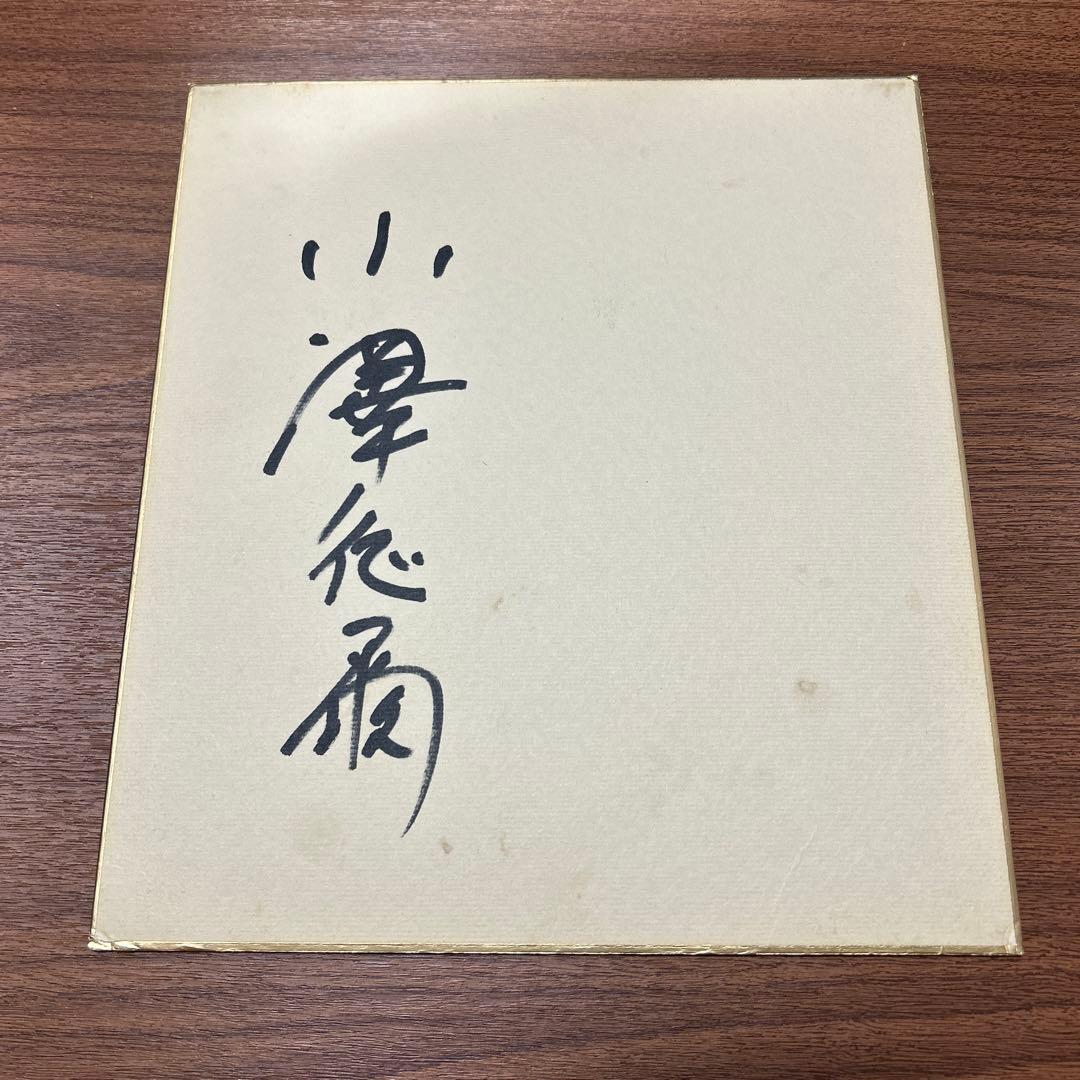 小澤征爾